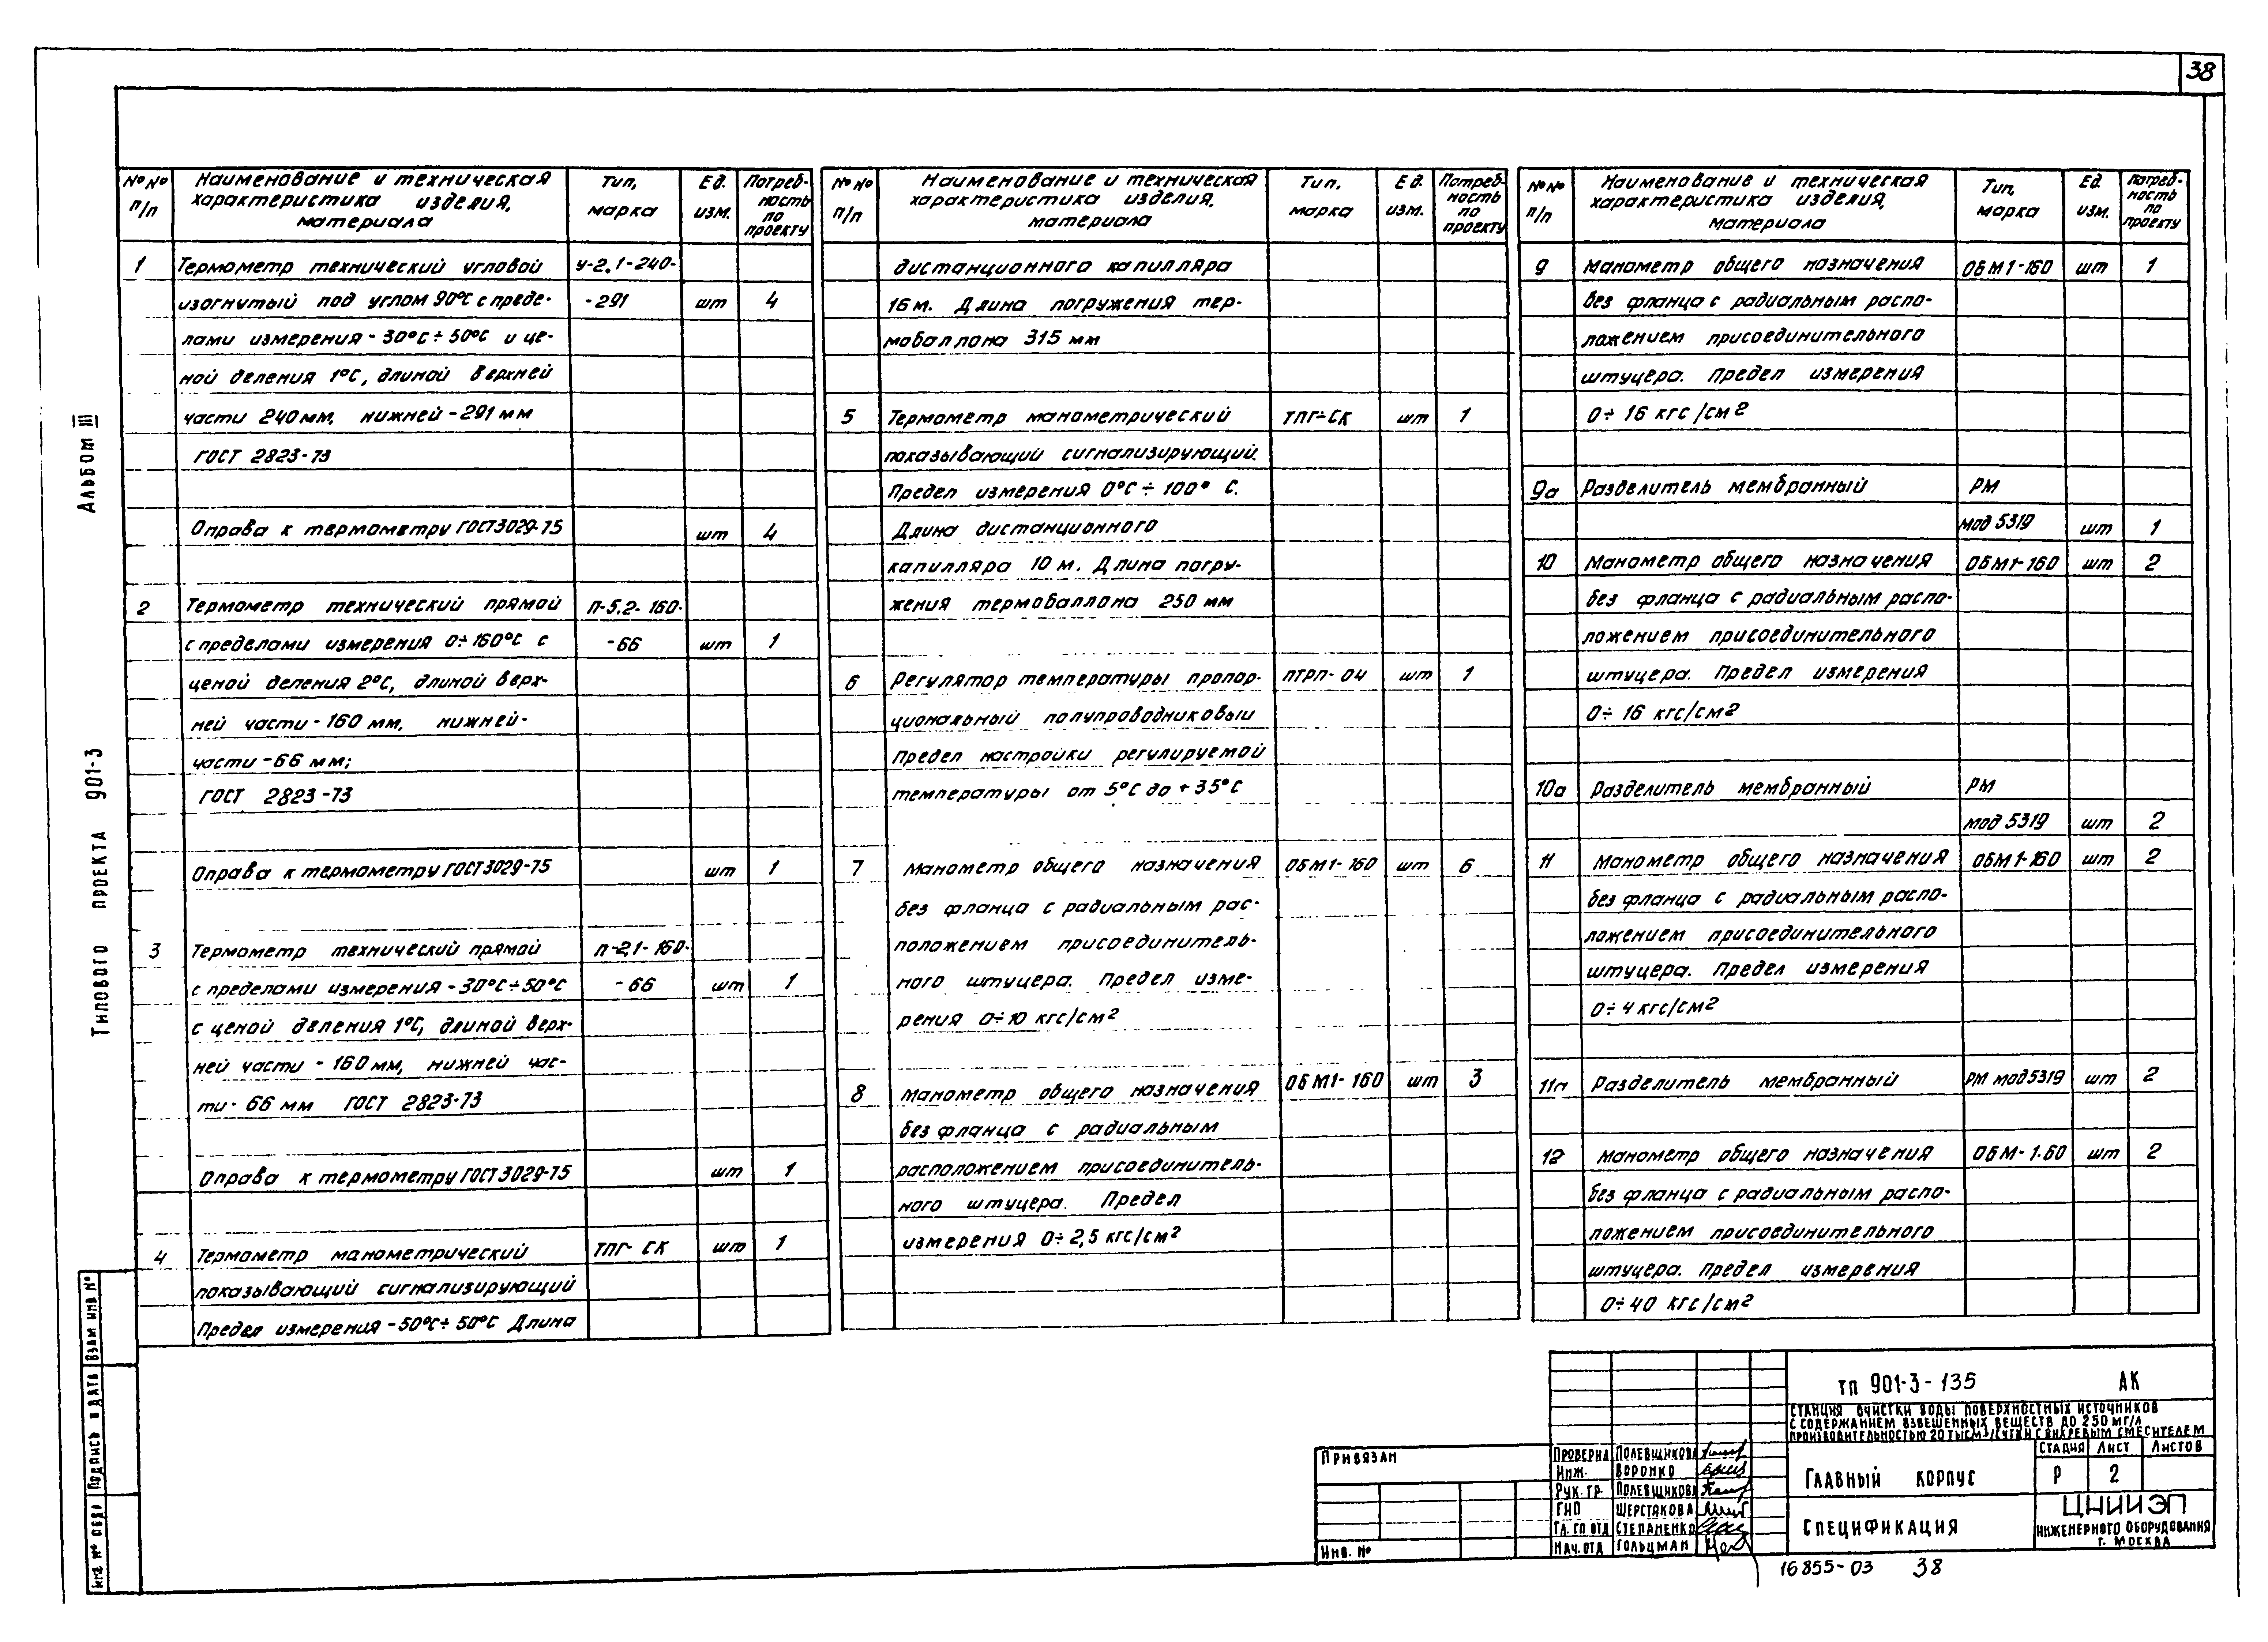 38
Альбом III
Типового проекта 901-3
№№ п/п
Наименование и техническая характеристика изделия, материала
Тип, марка
Ед. изм.
Потребность по проекту
1 Термометр технический угловой У-2.1-240-
изогнутый под углом 90°С с преде- -291 шт 4
лами измерения -30°С÷50°С и це-
ной деления 1°С, длиной верхней
части 240мм, нижней -291 мм
ГОСТ 2823-73
Оправа к термометру ГОСТ3029-75 шт 4
2 Термометр технический прямой П-5.2-160-
с пределами измерения 0÷160°С с -66 шт 1
ценой деления 2°С, длиной верх-
ней части -160 мм, нижней-
части -66 мм;
ГОСТ 2823-73
Оправа к термометру ГОСТ3029-75 шт 1
3 Термометр технический прямой П-2,1-160-
с пределами измерения -30°С÷50°С -66 шт 1
с ценой деления 1°С, длиной верх-
ней части - 160 мм, нижней час-
ти- 66 мм ГОСТ 2823-73
Оправа к термометру ГОСТ3029-75 шт 1
4 Термометр манометрический ТПГ-СК шт 1
показывающий сигнализирующий
Предел измерения -50°С÷50°С Длина
№№ п/п
Наименование и техническая характеристика изделия, материала
Тип, марка
Ед. изм.
Потребность по проекту
дистанционного капилляра
16 м. Длина погружения тер-
мобаллона 315 мм
5 Термометр манометрический ТПГ-СК шт 1
показывающий сигнализирующий.
Предел измерения 0°С÷100° С.
Длина дистанционного
капилляра 10 м. Длина погру-
жения термобаллона 250 мм
6 Регулятор температуры пропор- ПТРП-04 шт 1
циональный полупроводниковый
Предел настройки регулируемой
температуры от 5°С до +35°С
7 Манометр общего назначения ОБМ1-160 шт 6
без фланца с радиальным рас-
положением присоединитель-
ного штуцера. Предел изме-
рения 0÷10 кгс/см2
8 Манометр общего назначения ОБМ1-160 шт 3
без фланца с радиальным
расположением присоединитель-
ного штуцера. Предел
измерения 0÷2,5 кгс/см2
№№ п/п
Наименование и техническая характеристика изделия, материала
Тип, марка
Ед. изм.
Потребность по проекту
9 Манометр общего назначения ОБМ1-160 шт 1
без фланца с радиальным распо-
ложением присоединительного
штуцера. Предел измерения
0÷16 кгс/см2
9а Разделитель мембранный РМ
мод 5319 шт 1
10 Манометр общего назначения ОБМ1-160 шт 2
без фланца с радиальным распо-
ложением присоединительного
штуцера. Предел измерения
0÷16 кгс/см2
10а Разделитель мембранный РМ
мод 5319 шт 2
11 Манометр общего назначения ОБМ1-160 шт 2
без фланца с радиальным распо-
ложением присоединительного
штуцера. Предел измерения
0÷4 кгс/см2
11а Разделитель мембранный РМ мод5319 шт 2
12 Манометр общего назначения ОБМ-1.60 шт 2
без фланца с радиальным распо-
ложением присоединительного
штуцера. Предел измерения
0÷40 кгс/см2
Взам инв №
Подпись и дата
Инв № обдл
Привязан
Инв. №
Проверил Полевщикова
Инж. Воронко
Рук. гр. Полевщикова
ГИП Шерстякова
Гл. сп отд Степаненко
Нач. отд Гольцман
ТП 901-3-135 АК
Станция очистки воды поверхностных источников
с содержанием взвешенных веществ до 250 мг/л
производительностью 20 тыс м3/сутки с вихревым смесителем
Главный корпус
Стадия Лист Листов
Р 2
Спецификация
ЦНИИЭП
инженерного оборудования
г. Москва
16855-03 38